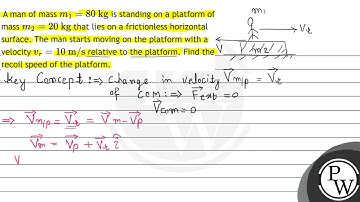 A man of mass m₁ = 80 kg is standing on a platform of
mass m₂ = 20 kg that lies on a frictionless horizontal
surface. The man starts moving on the platform with a
velocity vᵣ = 10 m/s relative to the platform. Find the
recoil speed of the platform.
m₁
Vᵣ
V
m₂
Key Concept :⇒ Change in velocity V⃗m/p = V⃗ᵣ
of COM :⇒ F⃗ext = 0
V⃗com = 0
⇒ V⃗m/p = V⃗ᵣ = V⃗m - V⃗p
V⃗m = V⃗p + V⃗ᵣ î
V
PW